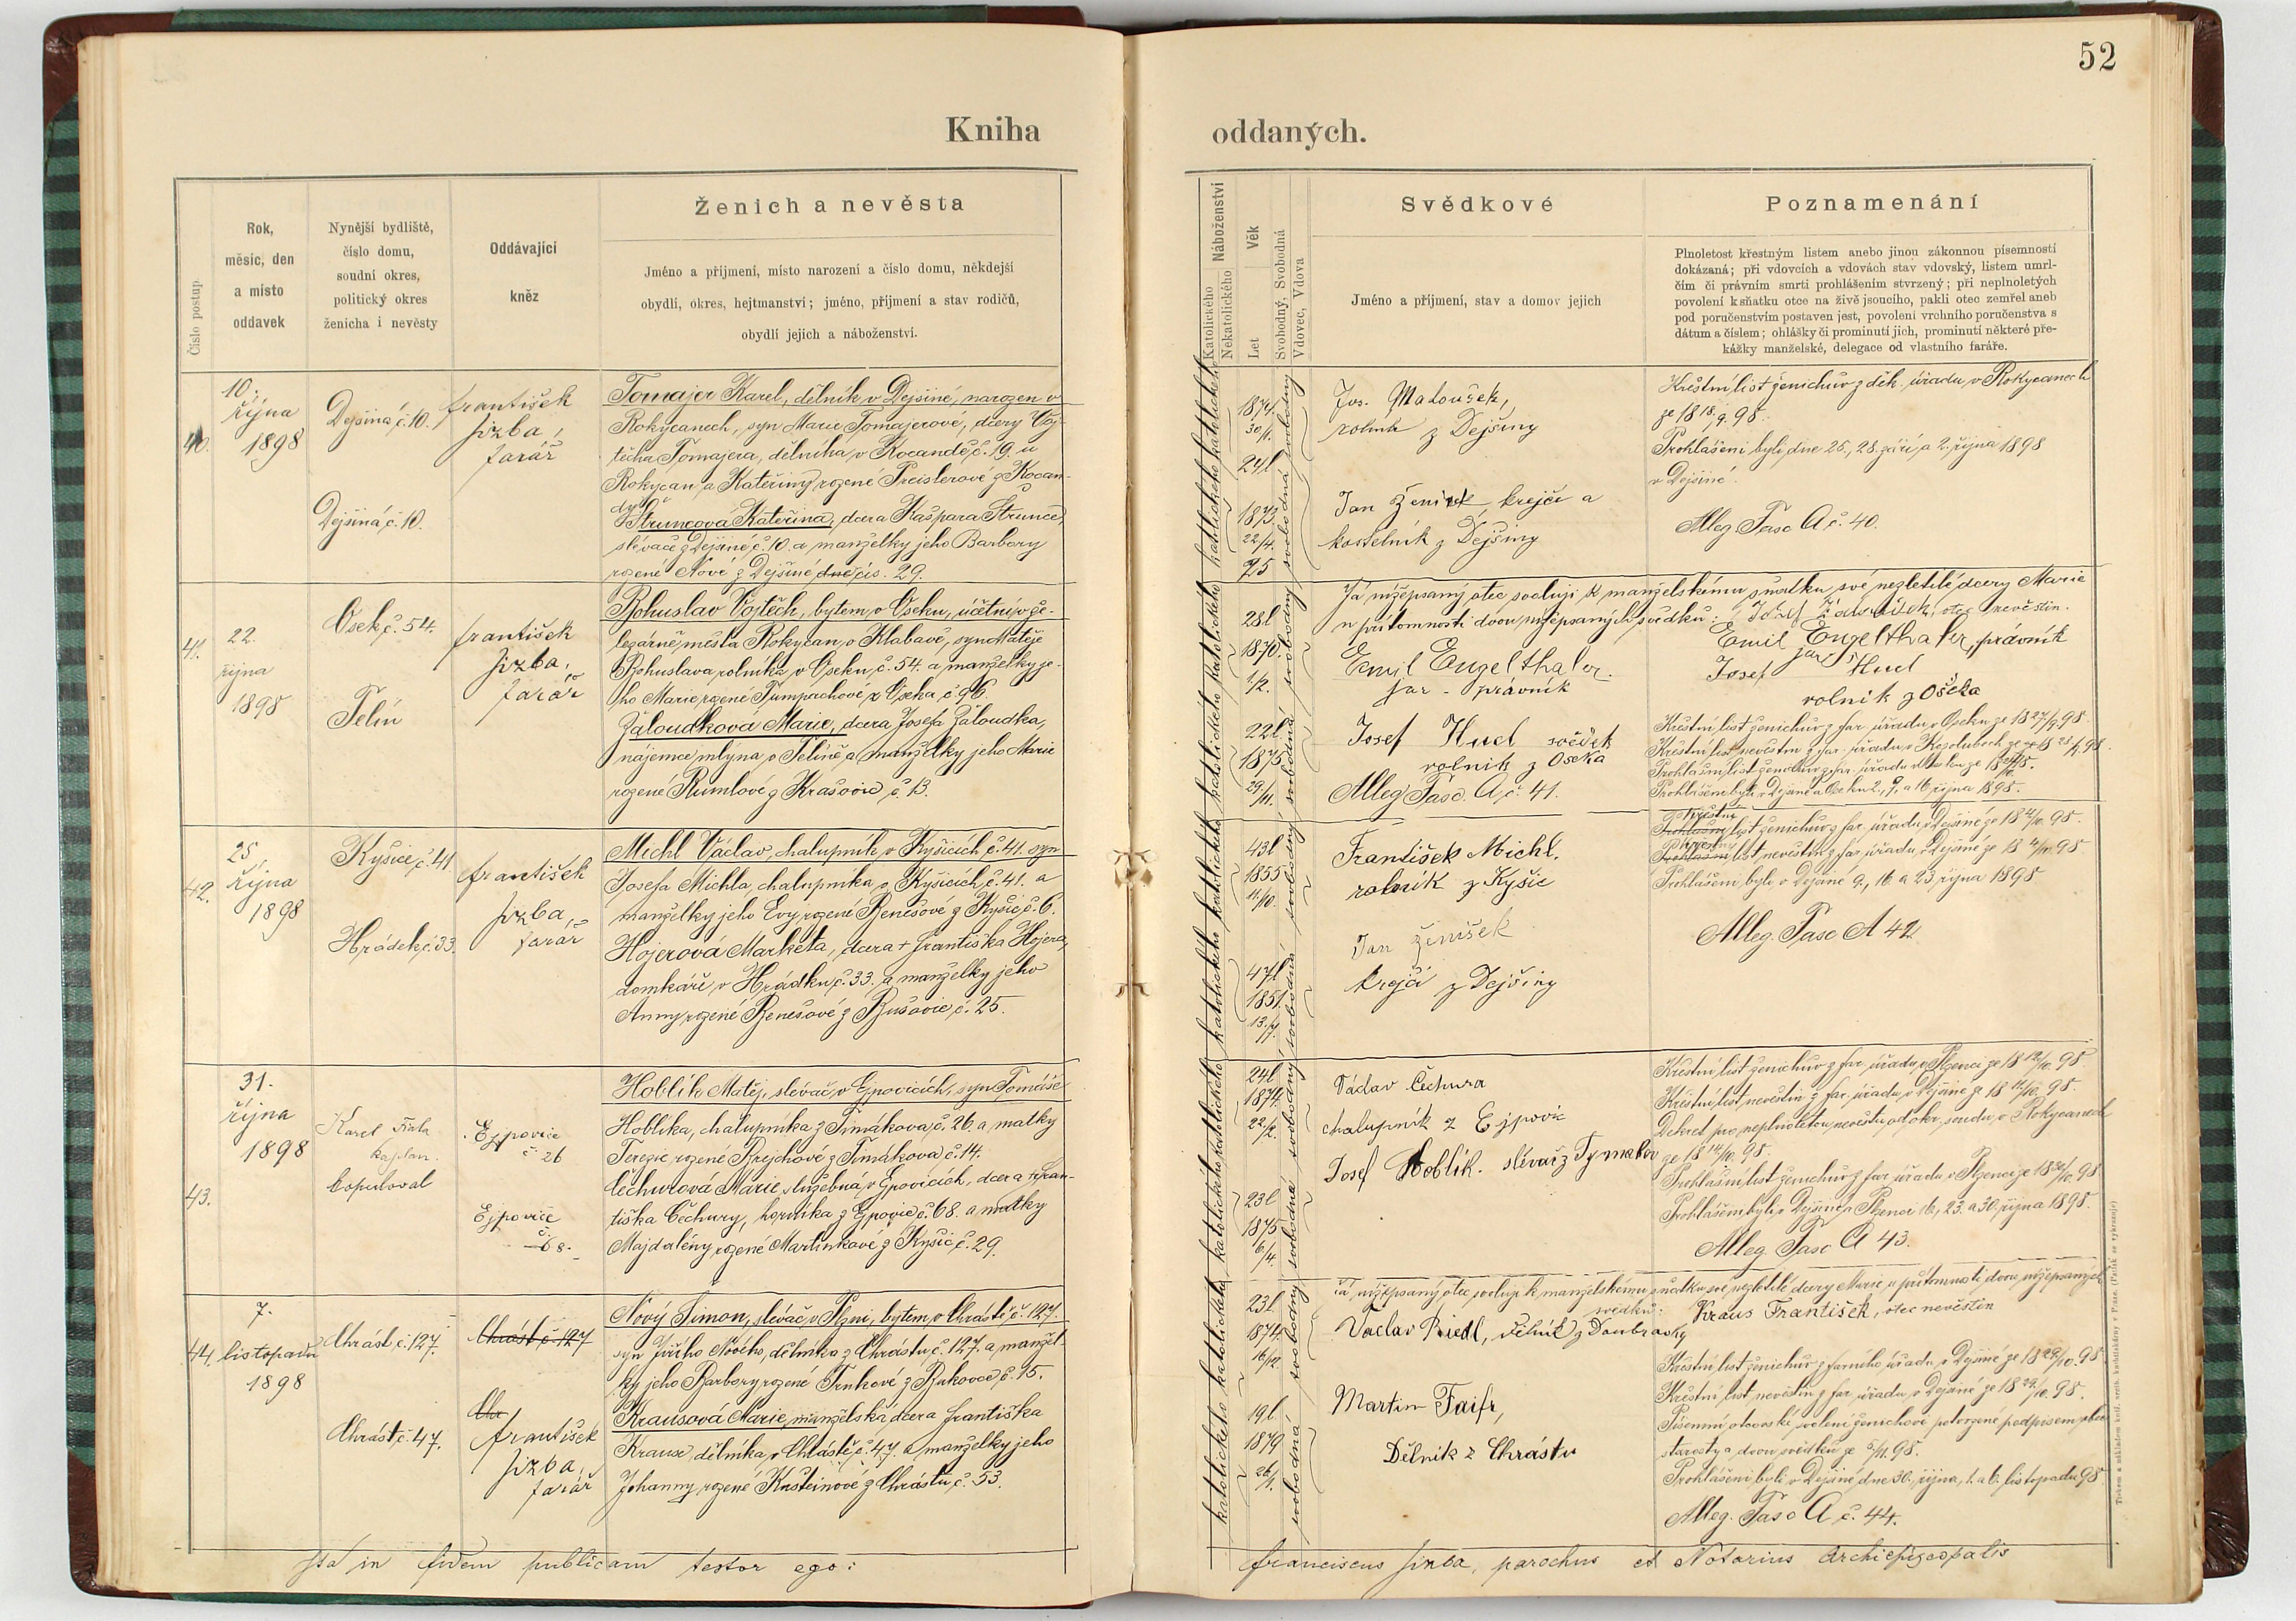 52
Kniha oddaných.
Číslo postup.
Rok,
měsíc, den
a místo
oddavek
Nynější bydliště,
číslo domu,
soudní okres,
politický okres
ženicha i nevěsty
Oddávající
kněz
Ženich a nevěsta
Jméno a příjmení, místo narození a číslo domu, někdejší
obydlí, okres, hejtmanství; jméno, příjmení a stav rodičů,
obydlí jejich a náboženství.
Náboženství
Katolického
Nekatolického
Věk
Let
Svobodný, Svobodná
Vdovec, Vdova
Svědkové
Jméno a příjmení, stav a domov jejich
Poznamenání
Plnoletost křestným listem anebo jinou zákonnou písemností
dokázaná; při vdovcích a vdovách stav vdovský, listem umrl-
čím či právním smrti prohlášením stvrzený; při neplnoletých
povolení k sňatku otce na živě jsoucího, pakli otec zemřel aneb
pod poručenstvím postaven jest, povolení vrchního poručenstva s
dátum a číslem; ohlášky či prominutí jich, prominutí některé pře-
kážky manželské, delegace od vlastního faráře.
40.
10.
října
1898
Dejšiná č. 10.
Dejšiná č. 10.
František
Jizba,
farář
Tomajer Karel, dělník v Dejšiné, narozen v
Rokycanech, syn Marie Tomajerové, dcery Voj-
těcha Tomajera, dělníka v Kocandě č. 19. u
Rokycan a Kateřiny rozené Preislerové z Kocan-
dy.
Štruncová Kateřina, dcera Kašpara Štrunce,
slévače z Dejšiné č. 10. a manželky jeho Barbory
rozené Nové z Dejšiné čís. 29.
1874
30/1.
24 l
1873
22/4.
25
Jos. Matoušek,
rolník z Dejšiny
Jan Ženíšek, krejčí a
kostelník z Dejšiny
Křestní list ženichův z děk. úřadu v Rokycanech
ze 18 18/9. 98.
Prohlášeni byli dne 25., 28. září a 2. října 1898
v Dejšiné.
Alleg. Fasc A č. 40.
41.
22.
října
1898
Osek č. 54.
Telín
František
Jizba,
farář
Bohuslav Vojtěch, bytem v Oseku, účetní v že-
lezárně města Rokycan v Klabavě, syn Matěje
Bohuslava rolníka v Oseku č. 54. a manželky je-
ho Marie rozené Tumpachové z Oseka č. 96.
Žaloudková Marie, dcera Josefa Žaloudka,
nájemce mlýna v Telíně a manželky jeho Marie
rozené Rumlové z Krašovic č. 13.
28 l
1870.
1/2.
22 l
1875
29/11.
Já nížepsaný otec svoluji k manželskému sňatku své nezletilé dcery Marie
v přítomnosti dvou nížepsaných svědků: Josef Žaloudek, otec nevěstin.
Emil Engelthaler
jur - právník
Josef Hud svědek
rolník z Oseka
Alleg Fasc. A č. 41.
Emil Engelthaler, právník
Josef Hud
rolník z Oseka
42.
25.
října
1898
Kyšice č. 41
Hrádek č. 33.
František
Jizba,
farář
Michl Václav, chalupník v Kyšicích č. 41. syn
Josefa Michla, chalupníka v Kyšicích č. 41. a
manželky jeho Evy rozené Benešové z Kyšic č. 6.
Hojerová Markéta, dcera + Františka Hojera,
domkáře v Hrádku č. 33. a manželky jeho
Anny rozené Benešové z Bušovic č. 25.
43 l
1855
11/10.
47 l
1851.
13/7.
František Michl.
rolník z Kyšic
Jan Ženíšek
krejčí z Dejšiny
Prohlášeni byli v Dejšiné 9., 16. a 23. října 1898
Alleg. Fasc A 42.
43.
31.
října
1898
Karel Fiala
kaplan.
kopuloval
Ejpovice
č. 26
Ejpovice
č.
68.
Hoblík Matěj, slévač v Ejpovicích, syn Tomáše
Hoblíka, chalupníka z Timákova č. 26. a matky
Terezie rozené Brejchové z Timákova č. 14.
Čechurová Marie, služebná v Ejpovicích, dcera + Fran-
tiška Čechury, horníka z Ejpovic č. 68. a matky
Majdalény rozené Martinkové z Kyšic č. 29.
24 l
1874.
22/2.
23 l
1875
6/4.
Václav Čechura
chalupník z Ejpovic
Josef Hoblík. slévač z Tymakov
Křestní list ženichův z far. úřadu v Plzenci ze 18 12/10. 98.
Křestní list nevěstin z far. úřadu v Dejšiné ze 18 12/10. 98.
Dekret pro neplnoletou nevěstu od okr. soudu v Rokycanech
ze 18 14/10. 98.
Prohlášeni byli v Dejšiné a Plzenci 16., 23. a 30. října 1898.
Alleg. Fasc A 43.
44.
7.
listopadu
1898
Chrást č. 127.
Chrást č. 47.
Chrást č. 127
Chr
František
Jizba,
farář
Nový Šimon, slévač v Plzni, bytem v Chrástě č. 127.
syn Jiřího Nového, dělníka z Chrástu č. 127. a manžel-
ky jeho Barbory rozené Trnkové z Bukovce č. 15.
Krausová Marie, manželská dcera Františka
Krause dělníka v Chrástě č. 47. a manželky jeho
Johanny rozené Kašteinové z Chrástu č. 53.
23 l
1874.
16/12.
19 l
1879
26/1.
Já nížepsaný otec svoluji k manželskému sňatku své nezletilé dcery Marie v přítomnosti dvou nížepsaných
svědků: Kraus František, otec nevěstin
Vaclav Riedl, dělník z Doubravky
Martin Faifr,
Dělník z Chrástu
Křestní list ženichův z farního úřadu v Dejšiné ze 18 29/10. 98.
Křestní list nevěstin z far. úřadu v Dejšiné ze 18 29/10. 98.
Písemní otcovské svolení ženichovi potvrzené podpisem
starosty a dvou svědků ze 5/11. 98.
Prohlášeni byli v Dejšiné dne 30. října, 1. a 6. listopadu 98.
Alleg. Fasc A č. 44.
Ita in fidem publicam testor ego:
Franciscus Jizba, parochus et Notarius Archiepiscopalis